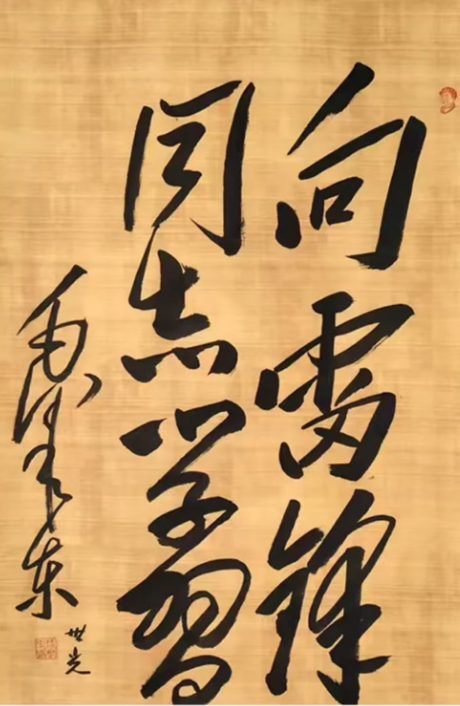 向雷锋
同志学习
毛泽东
世光